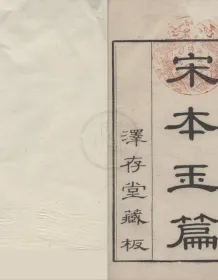 宋本玉篇
澤存堂藏板